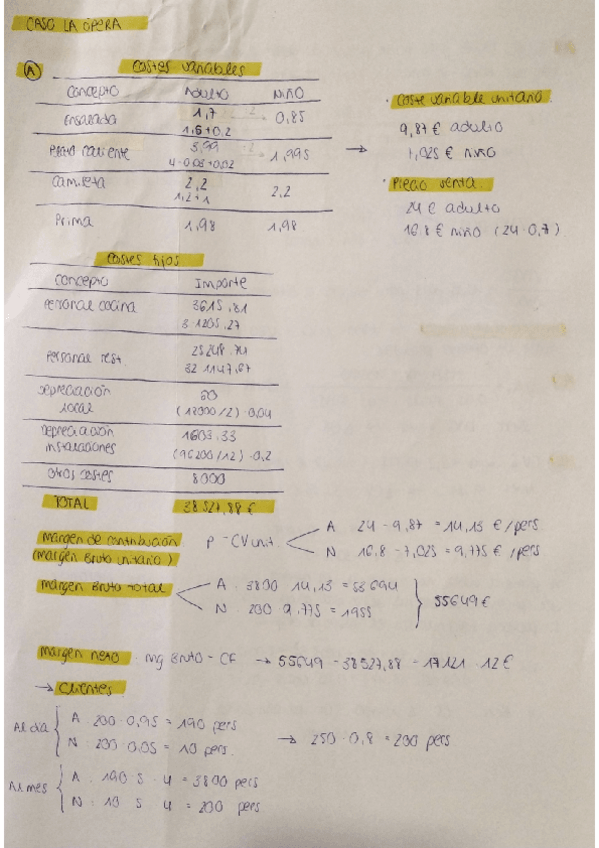 CASO LA ÓPERA
A
Costes variables
Concepto Adulto Niño
Ensalada 1,7 0,85
1,5+0,2
Plato caliente 3,99 1,995
Camiseta 2,2 2,2
1,2+1
Prima 1,98 1,98
· Coste variable unitario.
9,87 € adulto
7,025 € niño
· Precio venta.
24 € adulto
16,8 € niño (24·0,7)
Costes fijos
Concepto Importe
Personal cocina 3615,81
3·1205,27
Personal rest 25248,74
22 1147,67
Depreciación local
(12000/12)·0,04
Depreciación instalaciones 1603,33
(96200/12)·0,2
Otros costes 8000
TOTAL 38527,88 €
Margen de contribución
(Margen bruto unitario)
P - CVunit.
A 24 - 9,87 = 14,13 €/pers
N 16,8 - 7,025 = 9,775 €/pers
Margen bruto total
A · 3800 14,13 = 53694
N · 200 9,775 = 1955
55649 €
Margen neto · Mg Bruto - CF → 55649 - 38527,88 = 17121,12 €
→ Clientes
Al día
A · 200·0,95 = 190 pers
N · 200·0,05 = 10 pers.
→ 250·0,8 = 200 pers
Al mes
A · 190 5 4 = 3800 pers
N · 10 5 4 = 200 pers